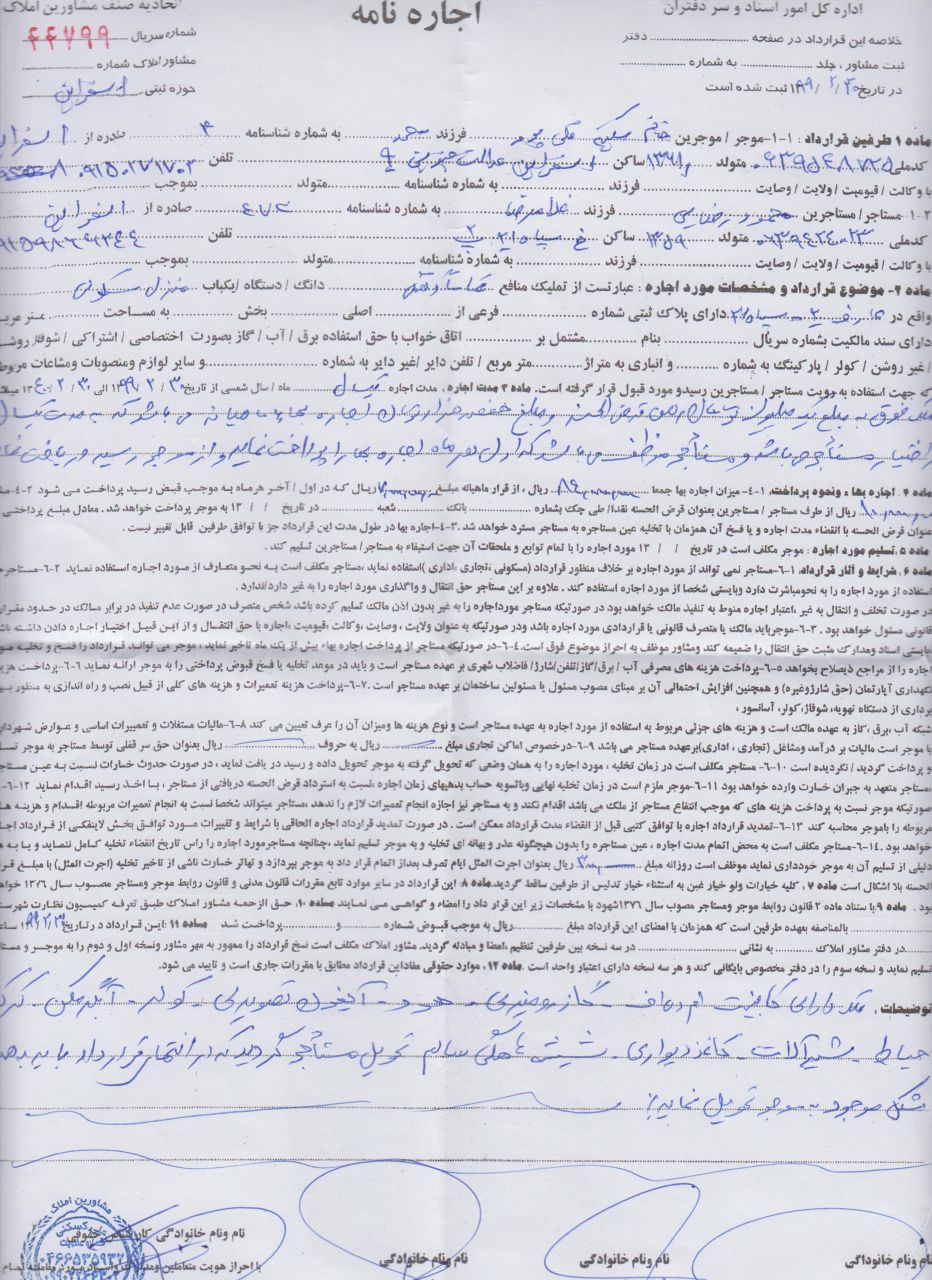 اداره کل امور اسناد و سر دفتران
اجاره نامه
اتحادیه صنف مشاورین املاک
خلاصه این قرارداد در صفحه دفتر
شماره سریال ۴۴۷۹۹
ثبت مشاور ، جلد به شماره
مشاور املاک شماره
در تاریخ ۹۹/۲/۳۰ ۱۳ ثبت شده است
حوزه ثبتی اسفراین
ماده ۱ طرفین قرارداد : ۱-۱- موجر / موجرین خانم فرزند محمد به شماره شناسنامه ۳ صادره از اسفراین
کدملی متولد ۱۳۶۱ ساکن اسفراین عدالت تلفن
با وکالت / قیومیت / ولایت / وصایت فرزند به شماره شناسنامه متولد بموجب
۱-۲- مستاجر / مستاجرین محمود رضایی فرزند غلامرضا به شماره شناسنامه صادره از اسفراین
کدملی متولد ۱۳۵۹ ساکن تلفن
با وکالت / قیومیت / ولایت / وصایت فرزند به شماره شناسنامه متولد بموجب
ماده ۲- موضوع قرارداد و مشخصات مورد اجاره : عبارتست از تملیک منافع دانگ / دستگاه / یکباب منزل مسکونی
واقع در دارای پلاک ثبتی شماره فرعی از اصلی بخش به مساحت متر مربع
دارای سند مالکیت بشماره سریال بنام مشتمل بر اتاق خواب با حق استفاده برق / آب / گاز بصورت اختصاصی / اشتراکی / شوفاژ روشن
/ غیر روشن / کولر / پارکینگ به شماره و انباری به متراژ متر مربع / تلفن دایر / غیر دایر به شماره و سایر لوازم و منصوبات و مشاعات مربوطه
که جهت استفاده به رویت مستاجر / مستاجرین رسیده و مورد قبول قرار گرفته است. ماده ۳ مدت اجاره . مدت اجاره یکسال ماه / سال شمسی از تاریخ ۹۹/۲/۳۰ الی
ملک فوق به مبلغ یکصد میلیون ریال قرض الحسنه و مبلغ هفتصد هزار تومان اجاره بها ماهیانه می باشد که به مدت یکسال
در اختیار مستأجر می باشد و مستأجر موظف می باشد که اول هر ماه اجاره بها را پرداخت نماید و از موجر رسید دریافت نماید
ماده ۴ . اجاره بهاء ونحوه پرداخت. ۱-۴- میزان اجاره بها جمعا ریال ، از قرار ماهیانه مبلغ ریال که در اول / آخر هر ماه به موجب قبض رسید پرداخت می شود ۲-۴- مبلغ
ریال از طرف مستاجر / مستاجرین بعنوان قرض الحسنه نقدا/ طی چک بشماره بانک شعبه در تاریخ / / ۱۳ به موجر پرداخت خواهد شد . معادل مبلغ پرداختی به
عنوان قرض الحسنه با انقضاء مدت اجاره و یا فسخ آن همزمان با تخلیه عین مستاجره به مستاجر مسترد خواهد شد .۳-۴-اجاره بها در طول مدت این قرارداد جز با توافق طرفین قابل تغییر نیست .
ماده ۵ , تسلیم مورد اجاره : موجر مکلف است در تاریخ / / ۱۳ مورد اجاره را با تمام توابع و ملحقات آن جهت استیفاء به مستاجر/ مستاجرین تسلیم کند .
ماده ۶ . شرایط و آثار قرارداد. ۱-۶-مستاجر نمی تواند از مورد اجاره بر خلاف منظور قرارداد (مسکونی ،تجاری ،اداری )استفاده نماید ،مستاجر مکلف است به نحو متعارف از مورد اجاره استفاده نماید ۲-۶-مستاجر
استفاده از مورد اجاره را به نحومباشرت دارد وبایستی شخصا از مورد اجاره استفاده کند . علاوه بر این مستاجر حق انتقال و واگذاری مورد اجاره را به غیر دارد/ندارد .
در صورت تخلف و انتقال به غیر ،اعتبار اجاره منوط به تنفیذ مالک خواهد بود در صورتیکه مستاجر مورداجاره را به غیر بدون اذن مالک تسلیم کرده باشد شخص متصرف در صورت عدم تنفیذ در برابر مالک در حدود مقررات
قانونی مسئول خواهد بود . ۳-۶-موجرباید مالک یا متصرف قانونی یا قراردادی مورد اجاره باشد ودر صورتیکه به عنوان ولایت ، وصایت ،وکالت ،قیومیت ،اجاره با حق انتقال و از این قبیل اختیار اجاره دادن داشته باشد
بایستی اسناد ومدارک مثبت حق انتقال را ضمیمه کند ومشاور موظف به احراز موضوع فوق است.۴-۶-در صورتیکه مستاجر از پرداخت اجاره بهاء بیش از یک ماه تاخیر نماید ، موجر می تواند قرارداد را فسخ و تخلیه مورد
اجاره را از مراجع ذیصلاح بخواهد ۵-۶-پرداخت هزینه های مصرفی آب / برق/گاز/تلفن/شارژ/ فاضلاب شهری بر عهده مستاجر است و باید در موعد تخلیه یا فسخ قبوض پرداختی را به موجر ارائه نماید ۶-۶-پرداخت هزینه
نگهداری آپارتمان (حق شارژوغیره) و همچنین افزایش احتمالی آن بر مبنای مصوب مسئول یا مسئولین ساختمان بر عهده مستاجر است .۷-۶-پرداخت هزینه تعمیرات و هزینه های کلی از قبیل نصب و راه اندازی به منظور بهره
برداری از دستگاه تهویه، شوفاژ،کولر، آسانسور ،
شبکه آب ،برق ،گاز به عهده مالک است و هزینه های جزئی مربوط به استفاده از مورد اجاره به عهده مستاجر است و نوع هزینه ها ومیزان آن را عرف تعیین می کند ۸-۶-مالیات مستغلات و تعمیرات اساسی و عوارض شهرداری
با موجر است مالیات بر درآمد ومشاغل (تجاری ، اداری)برعهده مستاجر می باشد ۹-۶-درخصوص اماکن تجاری مبلغ ریال به حروف ریال بعنوان حق سر قفلی توسط مستاجر به موجر
و پرداخت گردید / نگردیده است ۱۰-۶- مستاجر مکلف است در زمان تخلیه ، مورد اجاره را به همان وضعی که تحویل گرفته به موجر تحویل داده و رسید دریافت نماید ، در صورت حدوث خسارات نسبت به عین مستاجره
،مستاجر متعهد به جبران خسارت وارده خواهد بود ۱۱-۶-موجر ملزم است در زمان تخلیه نهایی وباتسویه حساب بدهیهای زمان اجاره ،نسبت به استرداد قرض الحسنه دریافتی از مستاجر ، با اخذ رسید اقدام نماید ۱۲-۶-در
صورتیکه موجر نسبت به پرداخت هزینه های که موجب انتفاع مستاجر از ملک می باشد اقدام نکند و به مستاجر نیز اجازه انجام تعمیرات لازم را ندهد ،مستاجر میتواند شخصا نسبت به انجام تعمیرات مربوطه اقدام و هزینه های
مربوطه را باموجر محاسبه کند ۱۳-۶-تمدید قرارداد اجاره با توافق کتبی قبل از انقضاء مدت قرارداد ممکن است . در صورت تمدید قرارداد اجاره الحاقی با شرایط و تغییرات مورد توافق بخش لاینفکی از قرارداد اجاره
خواهد بود .۱۴-۶-مستاجر مکلف است به محض اتمام مدت اجاره ، عین مستاجره را بدون هیچگونه عذر و بهانه ای تخلیه و به موجر تسلیم نماید ،چنانچه مستاجرمورد اجاره را راس تاریخ انقضاء تخلیه کامل ننماید و یا به هر
دلیلی از تسلیم آن به موجر خودداری نماید موظف است روزانه مبلغ ریال بعنوان اجرت المثل ایام تصرف بعداز اتمام قرار داد به موجر بپردازد و تهاتر خسارت ناشی از تاخیر تخلیه (اجرت المثل) با مبلغ قرض
الحسنه بلا اشکال است ماده ۷ , کلیه خیارات ولو خیار غبن به استثناء خیار تدلیس از طرفین ساقط گردید.ماده ۸: این قرارداد در سایر موارد تابع مقررات قانون مدنی و قانون روابط موجر ومستاجر مصوب سال ۱۳۷۶ خواهد
بود . ماده ۹:با ستناد ماده ۲ قانون روابط موجر ومستاجر مصوب سال ۱۳۷۶شهود با مشخصات زیر این قرار داد را امضاء و گواهی می نمایند ماده ۱۰, حق الزحمه مشاور املاک طبق تعرفه کمیسیون نظارت شهرستان
بالمناصفه بعهده طرفین است که همزمان با امضای این قرار داد مبلغ ریال به موجب قبوض شماره و پرداخت شد ماده ۱۱ :این قرارداد در تاریخ ۹۹/۲/۳۰ ساعت
در دفتر مشاور املاک به نشانی در سه نسخه بین طرفین تنظیم ,امضا و مبادله گردید. مشاور املاک مکلف است نسخ قرارداد را ممهور به مهر مشاور ونسخه اول و دوم را به موجر و مستاجر
تسلیم نماید و نسخه سوم را در دفتر مخصوص بایگانی کند و هر سه نسخه دارای اعتبار واحد است . ماده ۱۲, موارد حقوقی مفاداین قرارداد مطابق با مقررات جاری است و تایید می شود.
توضیحات . ملک دارای کابینت ام دی اف - گاز رومیزی - هود - آیفون تصویری - کولر - آبگرمکن
حیاط - شیرآلات - کاغذ دیواری - شیشه ها همگی سالم تحویل مستأجر گردید که در انتهای قرارداد باید به همان
شکل موجود به موجر تحویل نماید
نام ونام خانوادگی
نام ونام خانوادگی
نام ونام خانوادگی
نام ونام خانوادگی کارشناس حقوقی
مشاورین املاک